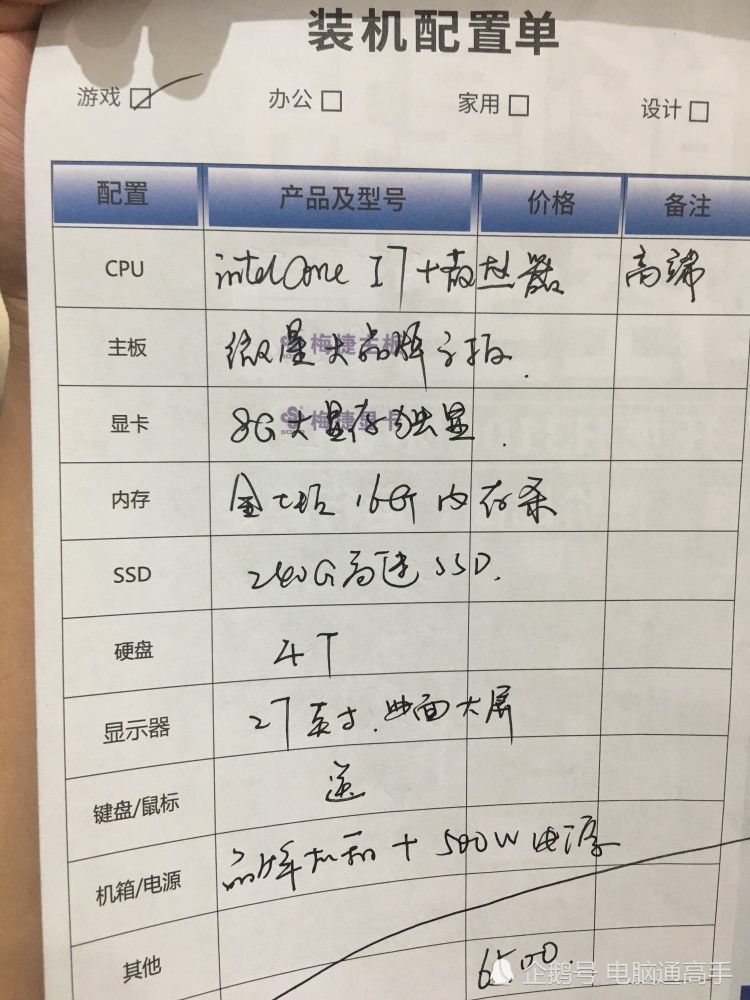 装机配置单
游戏 办公 家用 设计
配置 产品及型号 价格 备注
CPU intel One I7+散热器 高端
主板 微星大品牌主板.
梅捷主板
显卡 8G大显存独显.
梅捷显卡
内存 金士顿 16G 内存条
SSD 240G高速SSD.
硬盘 4T
显示器 27英寸.曲面大屏
键盘/鼠标 送
机箱/电源 品牌机箱 + 500W 电源
其他 6500.
企鹅号 电脑通高手